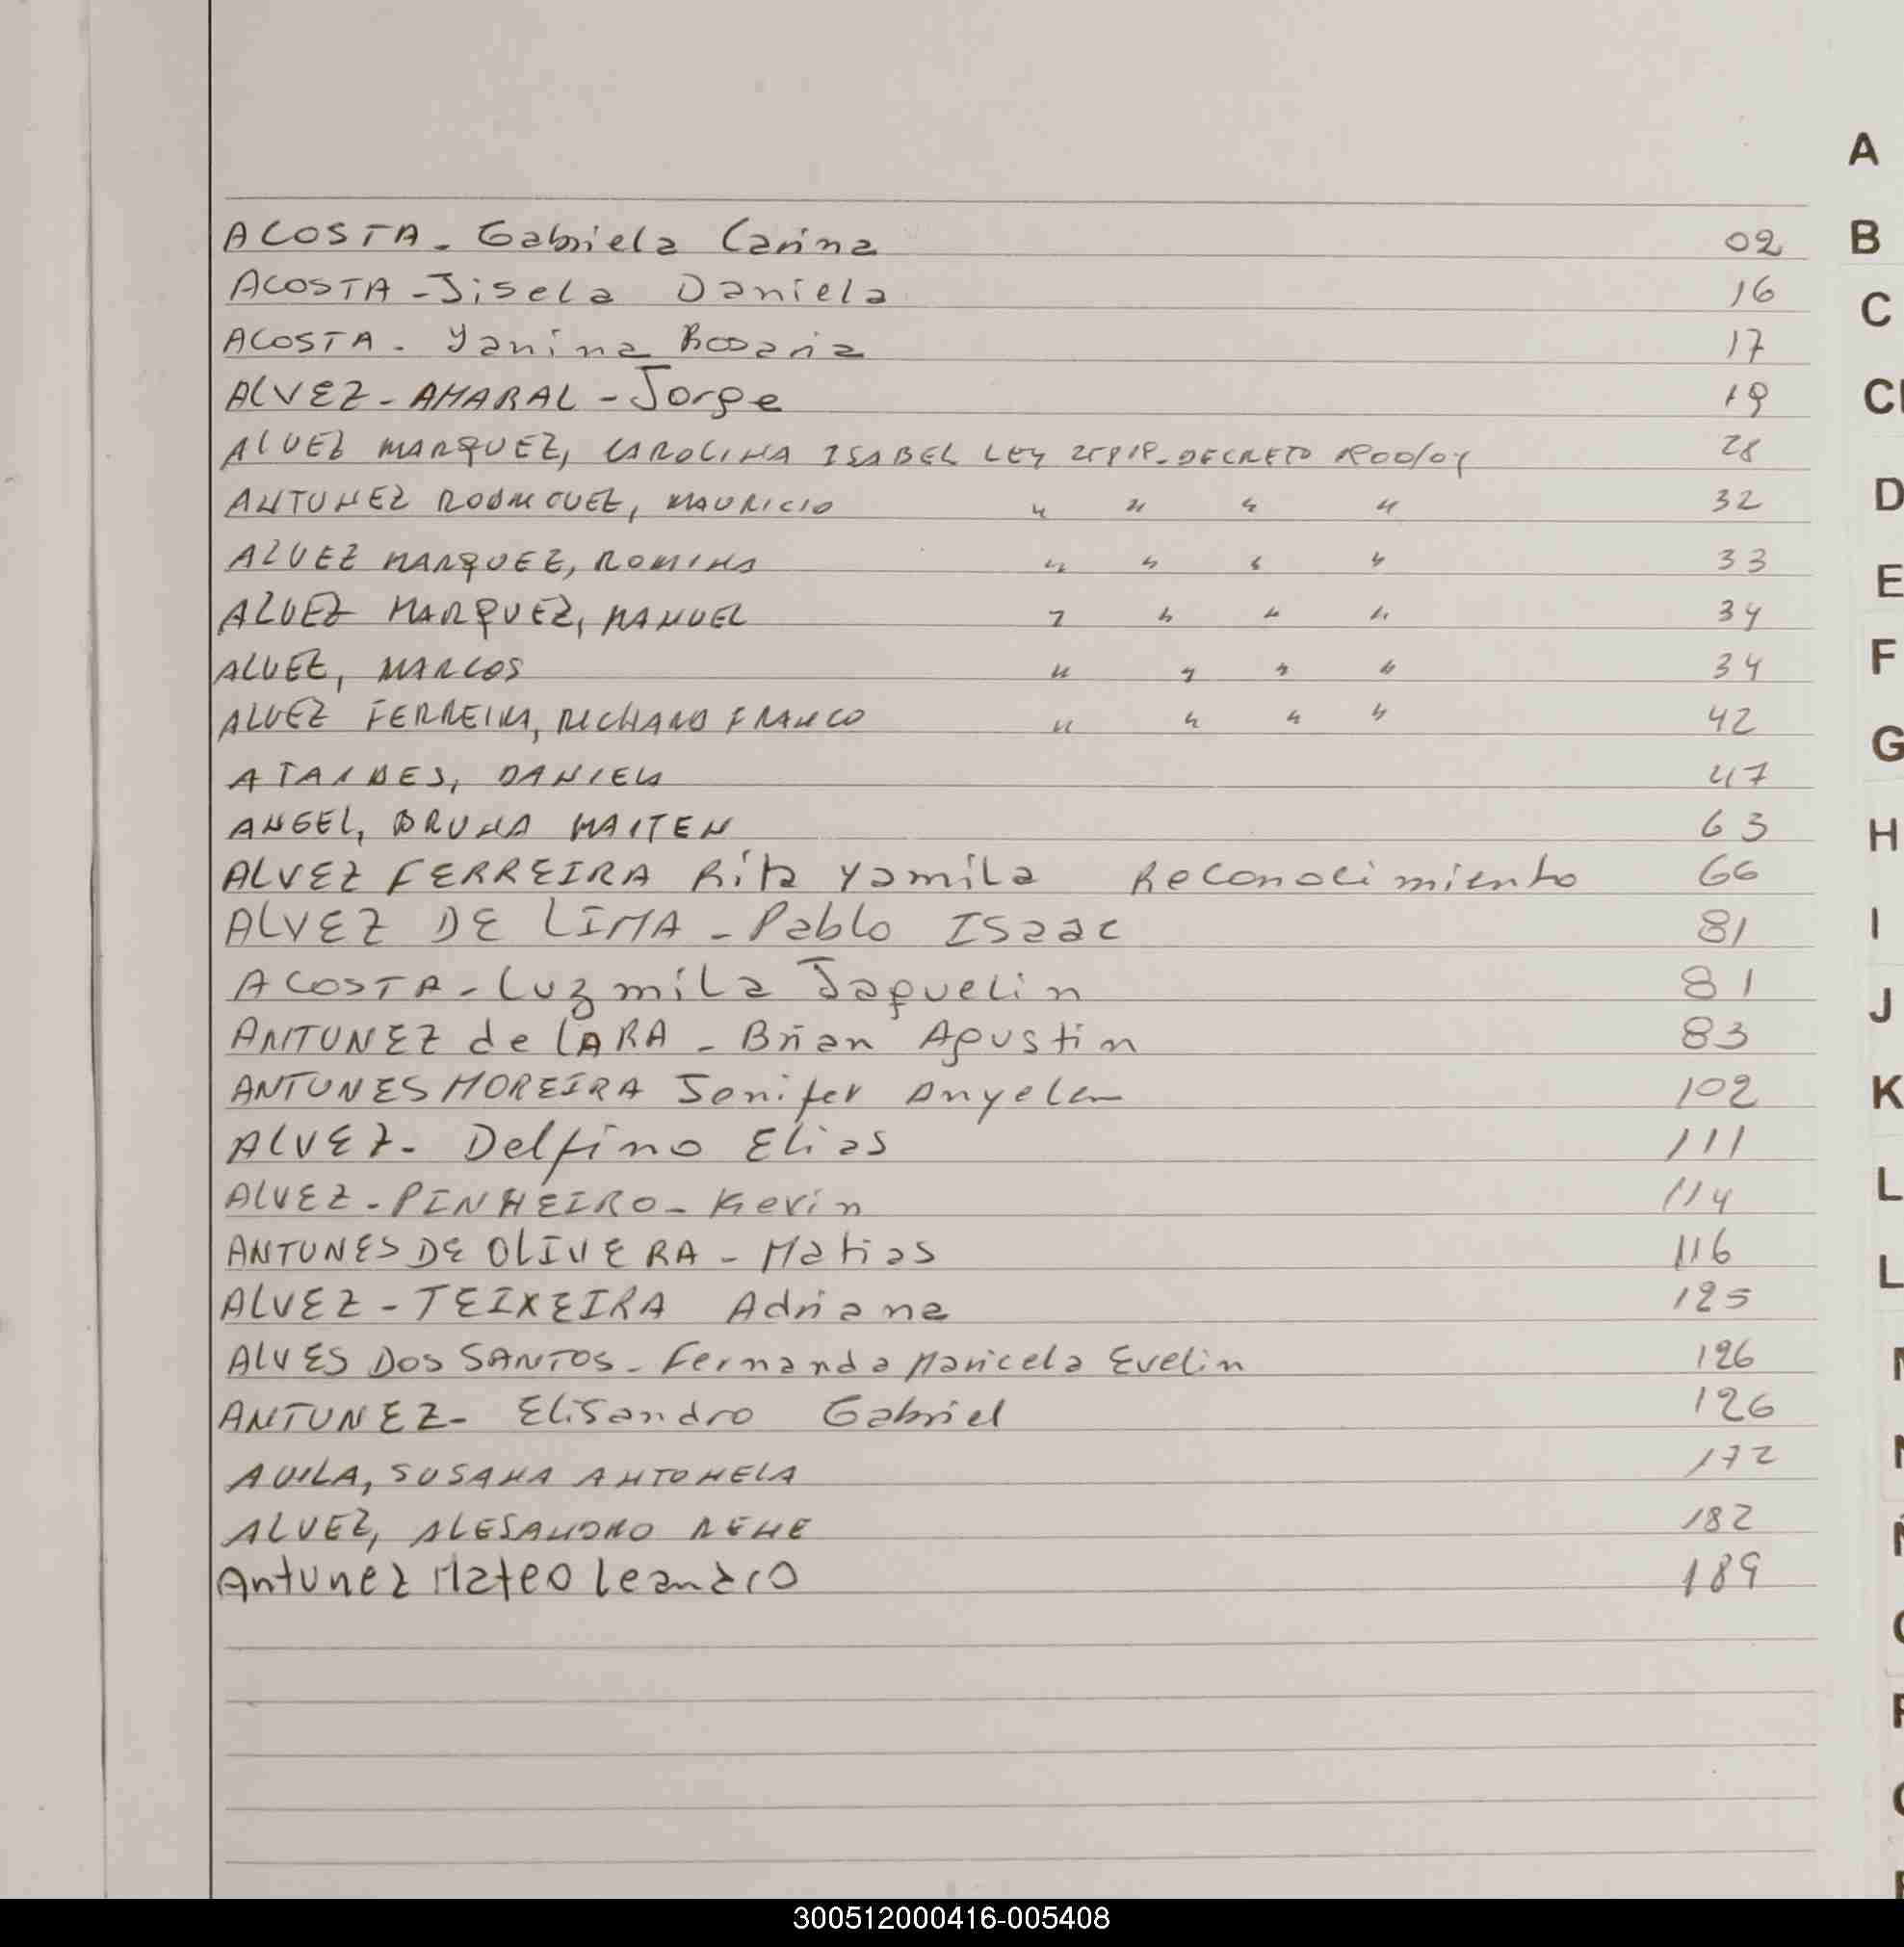 A
ACOSTA - Gabriela Carina 02
B
ACOSTA - Jisela Daniela 16
C
ACOSTA - Yanina Rosaria 17
ALVEZ - AMARAL - Jorge 19
ALVEZ MARQUEZ, CAROLINA ISABEL LEY DECRETO 28
D
ANTUNEZ RODRIGUEZ, MAURICIO " " " " 32
ALVEZ MARQUEZ, ROMINA " " " " 33
E
ALVEZ MARQUEZ, MANUEL " " " " 34
F
ALVEZ, MARCOS " " " " 34
ALVEZ FERREIRA, RICHARD FRANCO " " " " 42
G
ATAIDES, DANIELA 47
ANGEL, BRUNA MAITEN 63
H
ALVEZ FERREIRA Rita Yamila Reconocimiento 66
ALVEZ DE LIMA - Pablo ISaac 81
I
ACOSTA - Luzmila Jaquelin 81
J
ANTUNEZ de LARA - Brian Agustin 83
ANTUNES MOREIRA Jenifer Anyelen 102
K
ALVEZ - Delfino Elias 111
ALVEZ - PINHEIRO - Kevin 114
L
ANTUNES DE OLIVERA - Matias 116
L
ALVEZ - TEIXEIRA Adriana 125
ALVES DOS SANTOS - Fernanda Maricela Evelin 126
ANTUNEZ - Elisandro Gabriel 126
AVILA, SUSANA ANTONELA 172
ALVEZ, ALESANDRO RENE 182
Antunez Mateo Leandro 189
300512000416-005408